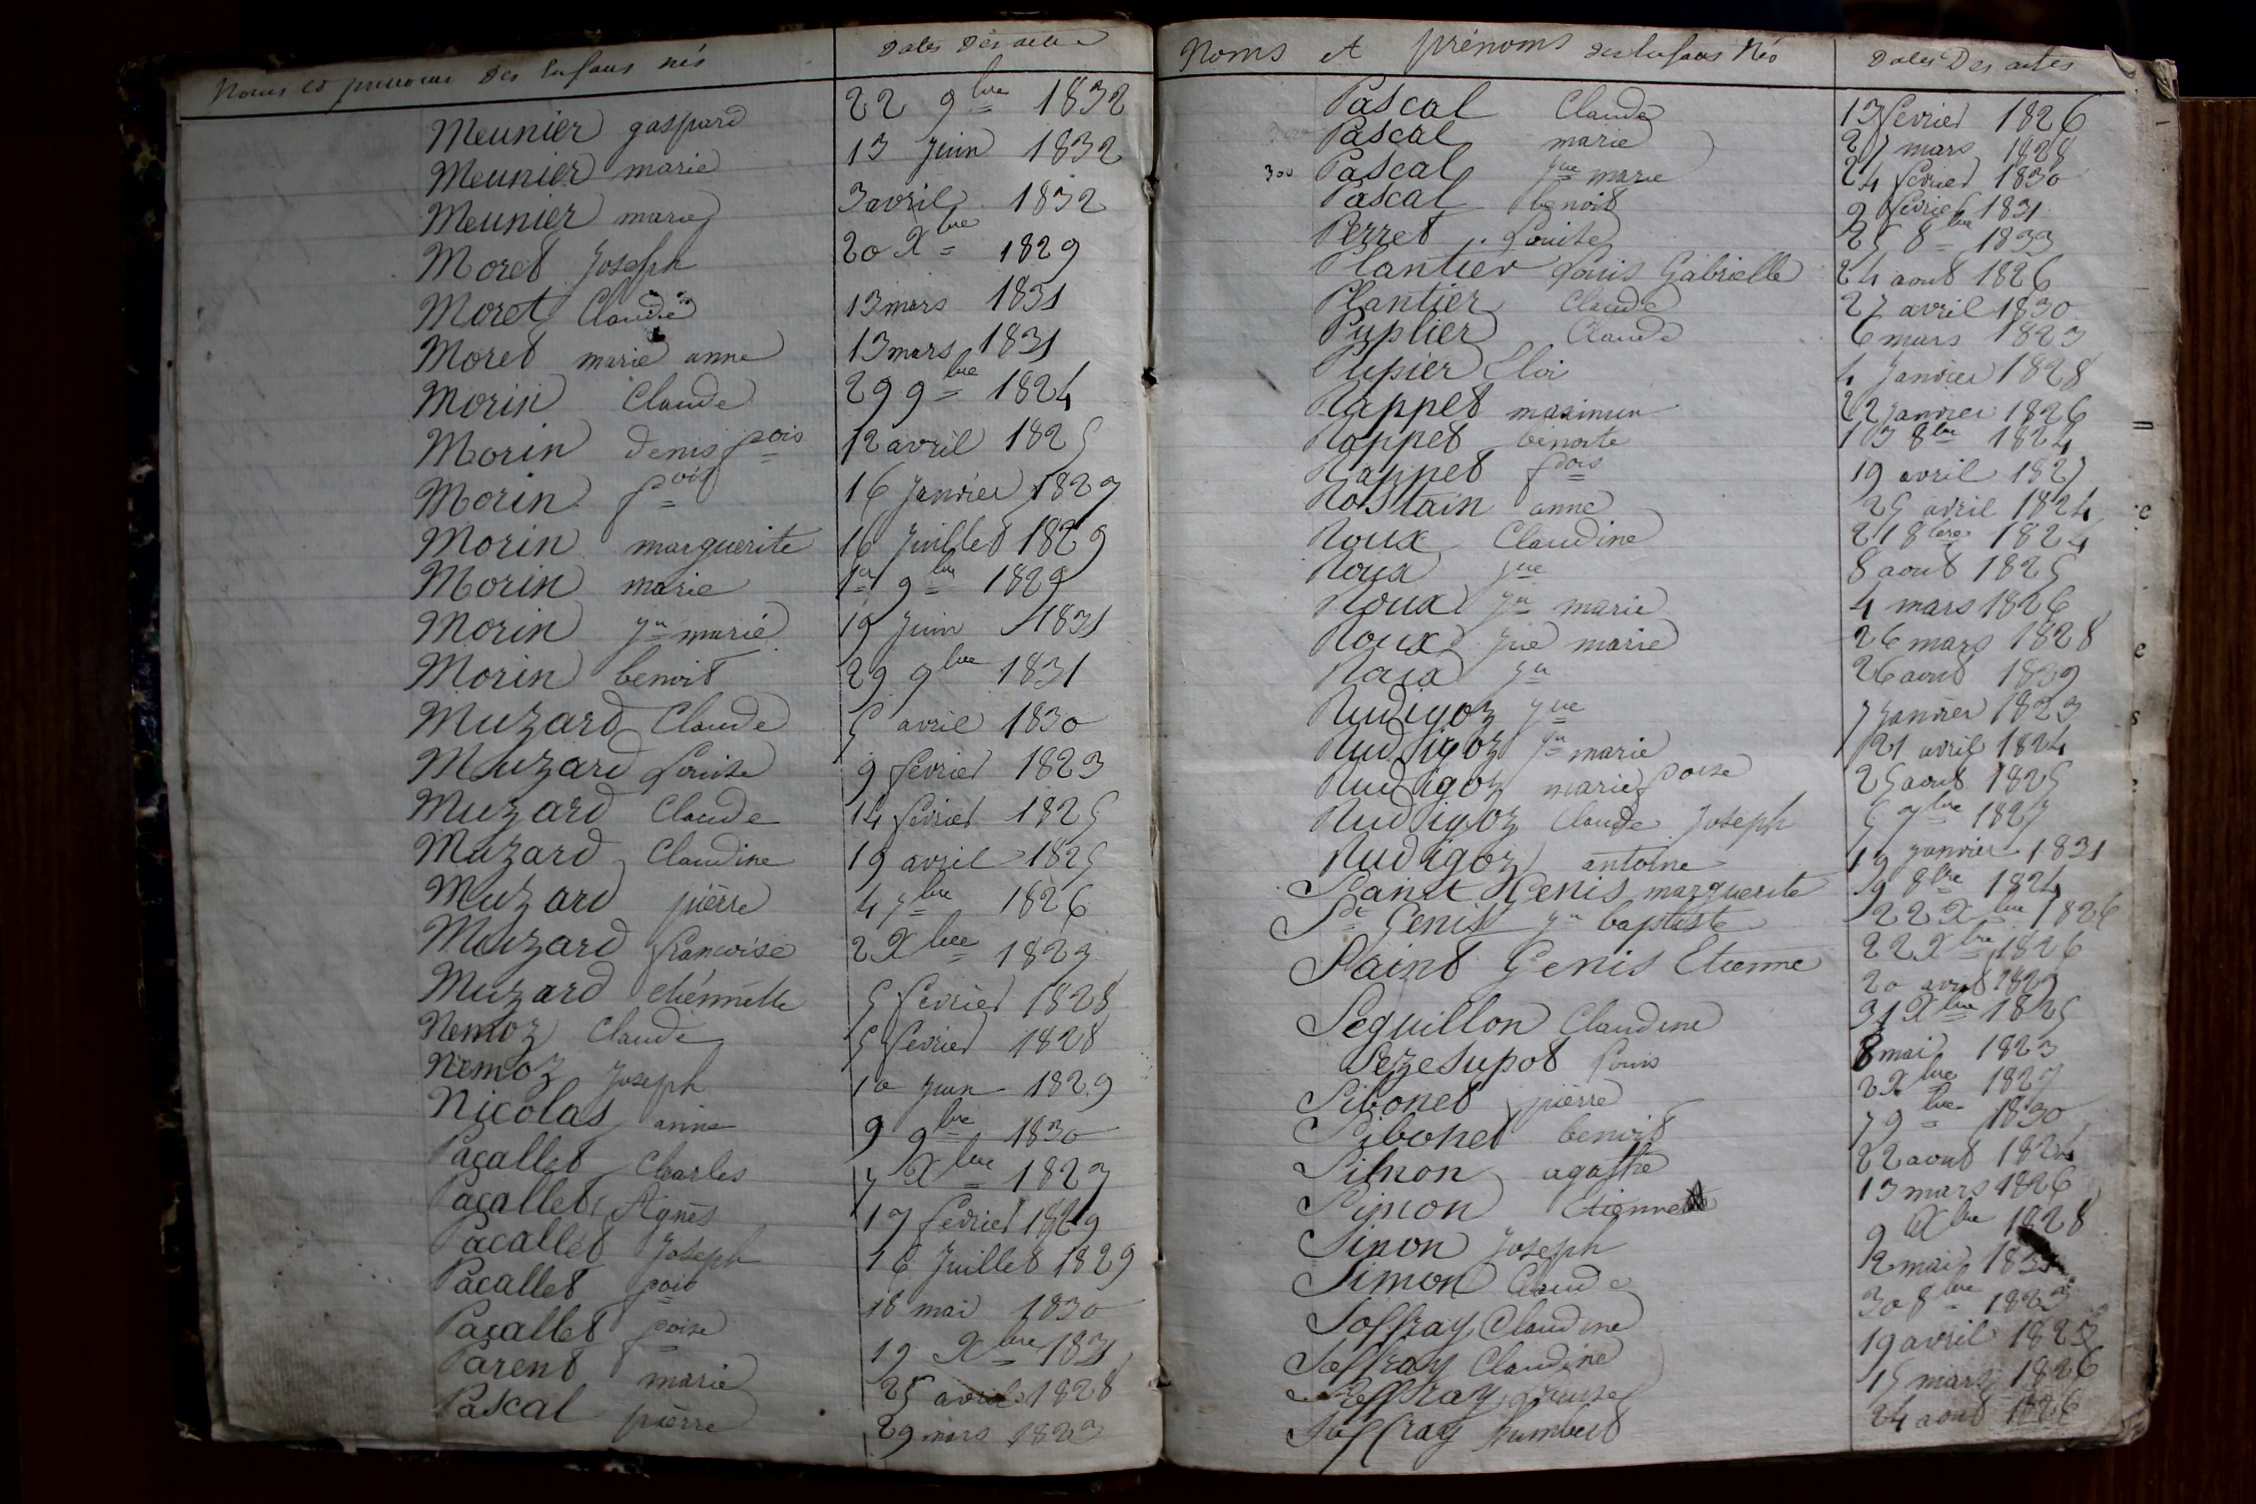 Noms et prenoms Des Enfans nés Dates Des actes
Meunier gaspard 22 9bre 1832
Meunier marie 13 Juin 1832
Meunier marie 3 avril 1832
Moret Joseph 20 Xbre 1829
Moret Claude 13 mars 1831
Moret marie anne 13 mars 1831
Morin Claude 29 9bre 1824
Morin denis fçois 12 avril 1825
Morin fçois 16 Janvier 1827
Morin marguerite 16 Juillet 1829
Morin marie 1er 9bre 1829
Morin Jn marie 19 Juin 1831
Morin benoit 29 9bre 1831
Muzard Claude 5 avril 1830
Muzard Louise 9 fevrier 1823
Muzard Claude 14 fevrier 1825
Muzard Claudine 19 avril 1825
Muzard pierre 4 7bre 1826
Muzard francoise 2 Xbre 1827
Muzard etiennette 5 fevrier 1828
Nemoz Claude 5 fevrier 1828
Nemoz Joseph 10 Juin 1829
Nicolas anne 9 9bre 1830
Paçallet Charles 7 Xbre 1827
Paçallet Agnes 17 fevrier 1829
Paçallet Joseph 16 Juillet 1829
Paçallet fçois 18 mai 1830
Paçallet fçoise 19 Xbre 1831
Parent marie 25 avril 1828
Pascal pierre 29 mars 1823
Noms et prénoms des Enfans Nés Dates Des actes
Pascal Claude 13 fevrier 1826
Pascal marie 27 mars 1828
300 Pascal Jne marie 24 fevrier 1830
Pascal benoit 2 fevrier 1831
Perret Louise 25 8bre 1833
Plantier Louis Gabrielle 24 aout 1826
Plantier Claude 27 avril 1830
Puplier Claude 6 mars 1823
Pupier Eloi 4 Janvier 1828
Rappet maximin 22 Janvier 1826
Rappet benoite 13 8bre 1824
Rappet fçois 19 avril 1827
Rostain anne 25 avril 1824
Roux Claudine 21 8bre 1824
Roux Jne 8 aout 1825
Roux Jn marie 4 mars 1826
Roux Jne marie 26 mars 1828
Roux Jn 26 aout 1839
Rudigoz Jne 7 Janvier 1823
Rudigoz Jn marie 21 avril 1824
Rudigoz marie fçoise 25 aout 1825
Rudigoz Claude Joseph 5 7bre 1827
Rudigoz antoine 19 Janvier 1831
Saint Genis marguerite 9 8bre 1824
St Genis Jn baptiste 22 Xbre 1826
Saint Genis Etienne 22 Xbre 1826
20 1827
Seguillon Claudine 31 Xbre 1825
Sezesupot Louis 8 mai 1823
Sibonet pierre 2 Xbre 1827
Sibonet benoit 7 9bre 1830
Simon agathe 22 aout 1824
Simon Etienne 13 mars 1826
Simon Joseph 9 Xbre 1828
Simon Claude 2 mai 1831
Soffray Claudine 30 8bre 1823
Soffray Claudine 19 avril 1825
Soffray 15 mars 1826
Soffray humbert 24 aout 1826